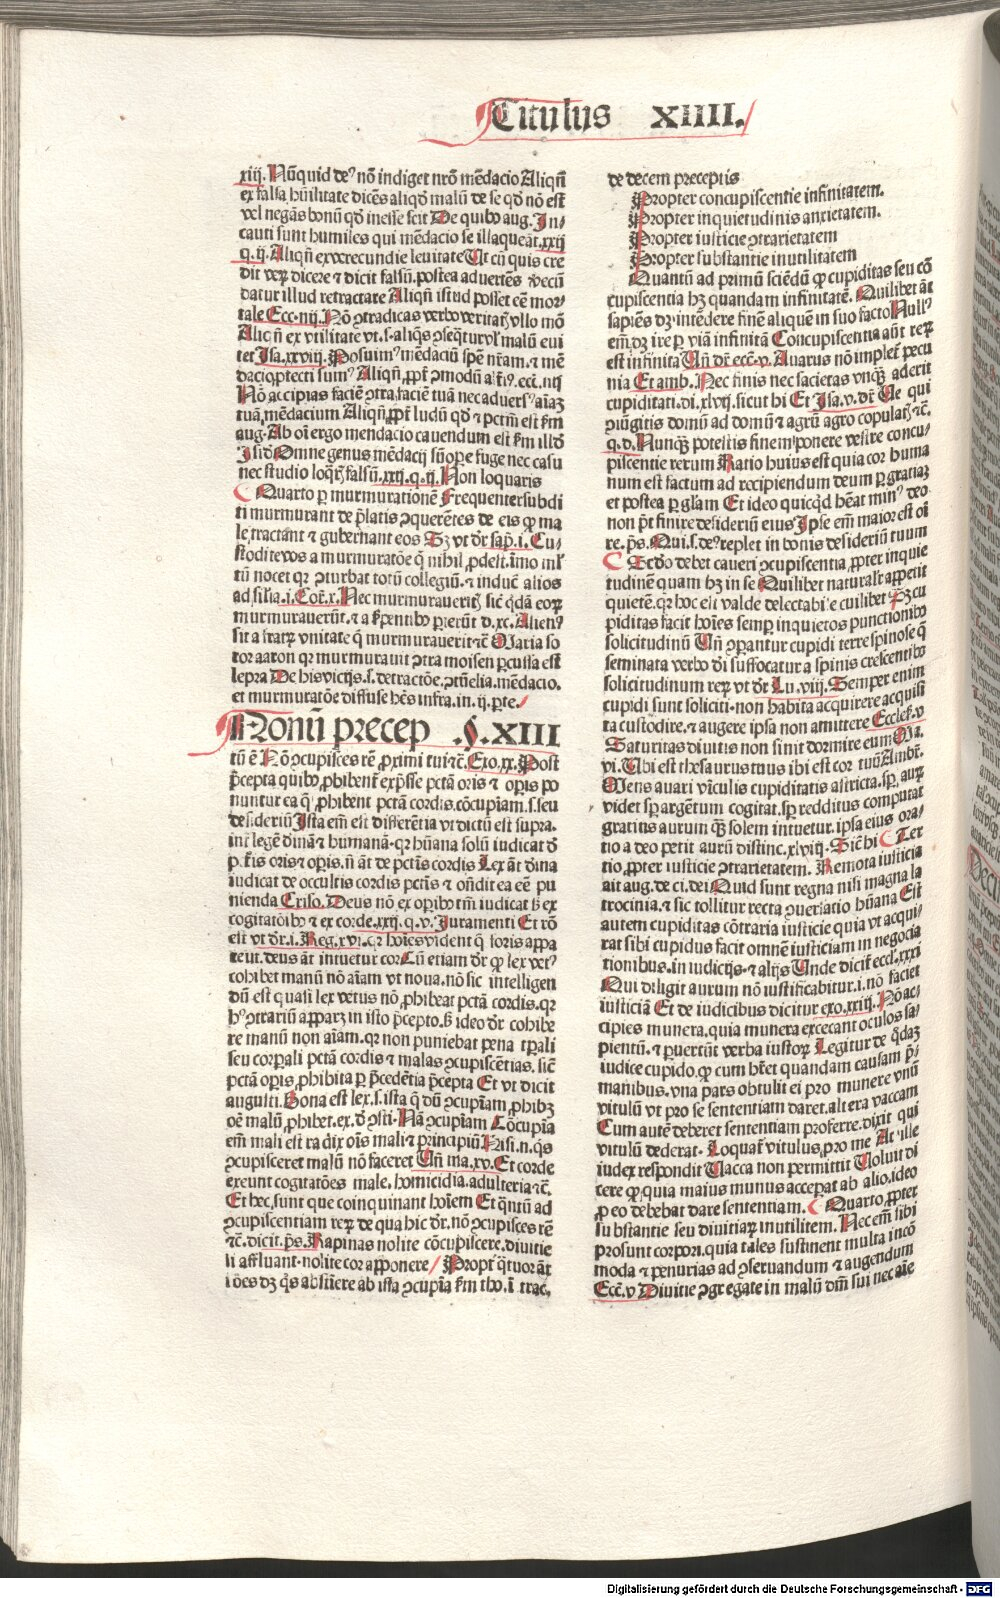 Titulus XIIII.
xiij. Nūquid deꝰ nō indiget nr̄o mēdacio Aliqn̄
ex falsa hūilitate dicēs aliqd̄ malū de se qd̄ nō est
vel negās bonū qd̄ inesse scit De quibꝰ aug. In⸗
cauti sunt humiles qui mēdacio se illaqueāt. xxij
q. ij. Aliqn̄ ex verecundie leuitate Ut cū quis cre
dit verū dicere ⁊ dicit falsū. postea aduertēs
datur illud retractare Aliqn̄ istud posset eē mor⸗
tale Ecc. iiij. Nō ꝯtradicas verbo veritatis vllo mō
Aliqn̄ ex vtilitate vt. s. aliqs ꝓseqtur vl' malū eui
tet Isa. xxviij. Posuimꝰ mēdaciū spē nr̄am. ⁊ mē
dacio ꝓtecti sumꝰ Aliqn̄ ꝓpt̄ ꝯmodū
Nō accipias faciē ꝯtra faciē tuā nec aduersꝰ aīaꝫ
tuā mēdacium Aliqn̄ ꝓpt̄ ludū qd̄ ⁊ pctm̄ est ẜm
aug. Ab oī ergo mendacio cauendum est ẜm illd̄
Isid̄ Omne genus mēdacij sūope fuge nec casu
nec studio loqrꝭ falsū. xxij. q. ij. Non loquaris
Quarto ꝑ murmurationē Frequenter subdi
ti murmurant de p̄latis ꝯquerētes de eis ꝙ ma
le tractant ⁊ gubernant eos Sꝫ vt dr̄ sap̄. i. Cu⸗
stodite vos a murmuratōe q̄ nihil ꝓdest. īmo ml'
tū nocet qr ꝯturbat totū collegiū. ⁊ inducit alios
ad silia. i. Cor̄. x. Nec murmurauerit̄ꝭ sic q̄dā eorꝫ
murmurauerūt. ⁊ a ẜpentibꝰ perierūt d. xc. Alienꝰ
sit a fratrꝫ vnitate q̄ murmurauerit ⁊c̄ Maria so
ror aaron qr murmurauit ꝯtra moisen ꝑcussa est
lepra De his vicijs. s. detractōe. ꝯtūelia. mēdacio.
et murmuratōe diffuse hēs infra. in. ij. pte.
Nonū precep .§. XIII
tū ē Nō ꝯcupisces rē ꝓximi tui ⁊c̄. Exo. xx. Post
p̄cepta quibꝰ ꝓhibent̄ exp̄sse pctā oris ⁊ opis po
nuntur ea q̄ ꝓhibent pctā cordis. cōcupiam. s. seu
desideriū Ista em̄ est differētia vt dictū est supra.
int̄ legē diuinā ⁊ humanā. qr hūana solū iudicat d̄
pctis oris ⁊ opis. n̄ āt de pctis cordis Lex āt diuina
iudicat de occultis cordis pctīs ⁊ on̄dit ea eē pu
nienda Criso. Deus nō ex opibꝰ tm̄ iudicat ß ex
cogitatōibꝰ ⁊ ex corde. xxij. q. v. Iuramenti Et rō
est vt dr̄. i. Reg. xvi. qr hoīes vident q̄ foris appa
rent. deus āt intuetur cor Cū etiam dr̄ ꝙ lex vetꝰ
cohibet manū nō aīam vt noua. nō sic intelligen
dū est quasi lex vetus nō ꝓhibeat pctā cordis. qr
hꝰ ꝯtrariū apparꝫ in isto p̄cepto. ß ideo dr̄ cohibe
re manū non aīam. qr non puniebat pena tpali
seu corpali pctā cordis ⁊ malas ꝯcupiscētias. sic̄
pctā opis ꝓhibita ꝑ p̄cedētia p̄cepta Et vt dicit
augusti. Bona est lex. s. ista q̄ dū ꝯcupiam ꝓhibꝫ
oē malū ꝓhibet. Nā ꝯcupiam Cōcupīa
em̄ mali est radix ois mali ⁊ principiū Nisi. n. q̄s
ꝯcupisceret malū nō faceret Un̄ ma. xv. Et corde
exeunt cogitatōes male. homicidia. adulteria ⁊c̄.
Et hec sunt que coinquinant hoīem Et q̄ntū ad
ꝯcupiscentiam rerꝫ de qua hic dr̄. nō ꝯcupisces rē
⁊c̄. dicit ps̄. Rapinas nolite cōcupiscere. diuitie
si affluant. nolite cor apponere Propt̄ q̄tuor āt
rōes dꝫ q̄s abstinere ab ista ꝯcupīa ẜm tho. ī trac.
de decem preceptis
Propter concupiscentie infinitatem.
Propter inquietudinis anxietatem.
Propter iusticie ꝯtrarietatem
Propter substantie inutilitatem
Quantū ad primū sciēdū ꝙ cupiditas seu cō
cupiscentia hꝫ quandam infinitatē. Quilibet āt
sapiēs dꝫ intēdere finē aliquē in suo facto Nullꝰ
em̄ dꝫ ire ꝑ viā infinitā Concupiscentia aūt rerꝫ
est infinita Un̄ dr̄ ecc̄. v. Auarus nō implet̄ pecu
nia Et amb. Nec finis nec sacietas vnqꝫ aderit
cupiditati. di. xlvij. sicut hi Et Isa. v. dr̄ Ue qui
ꝯiūgitis domū ad domū ⁊ agrū agro copulatꝭ ⁊c̄.
q. d. Nunqꝫ potestis finem ponere vestre concu⸗
piscentie rerum Ratio huius est quia cor huma
num est factum ad recipiendum deum ꝑ gratiaꝫ
et postea ꝑ gl̄am Et ideo quicqd̄ hēat minꝰ deo
non pt̄ finire desiderium eius Ipse em̄ maior est oī
re. ps̄. Qui. s. deꝰ replet in bonis desideriū tuum
Scd̄o debet caueri ꝯcupiscentia ꝓpter inquie
tudinē quam hꝫ in se Quilibet naturalr̄ appetit
quietē. qr hoc est valde delectabile cuilibet Sꝫ cu
piditas facit hoīes semp inquietos punctionibꝰ
solicitudinū Un̄ ꝯparantur cupidi terre spinose q̄
seminata verbo di suffocatur a spinis crescentibꝰ
solicitudinum rerꝫ vt dr̄ Lu. viij. Semper enim
cupidi sunt soliciti. non habita acquirere acquisi
ta custodire. ⁊ augere ipsa non amittere Eccles̄. v
Saturitas diuitis non sinit dormire eum Ma.
vi. Ubi est thesaurus tuus ibi est cor tuū Ambr̄.
Mens auari vīculis cupiditatis astricta. sp aurꝫ
videt sp argētum cogitat. sp redditus computat
gratius aurum qꝫ solem intuetur. ipsa eius ora⸗
tio a deo petit aurū distinc. xlviij. Sic̄ hi Ter
tio ꝓpter iusticie ꝯtrarietatem. Remota iusticia
ait aug. de ci. dei Quid sunt regna nisi magna la
trocinia. ⁊ sic tollitur recta ꝯuersatio hūana Est
autem cupiditas cōtraria iusticie quia vt acqui⸗
rat sibi cupidus facit omnē iusticiam in negocia
tionibus. in iudicijs. ⁊ alijs Unde dicit̄ eccl̄. xxxi
Qui diligit aurum nō iustificabitur. i. nō faciet
iusticiā Et de iudicibus dicitur exo. xxiij. Nō ac⸗
cipies munera. quia munera excecant oculos sa⸗
pientū. ⁊ ꝑuertūt verba iustorꝫ Legitur de q̄daꝫ
iudice cupido. ꝙ cum hr̄et quandam causam p̄
manibus. vna pars obtulit ei pro munere vnū
vitulū vt pro se sententiam daret. altera vaccam
Cum autē deberet sententiam proferre. dixit qui
vitulū dederat. Loquat̄ vitulus pro me At ille
iudex respondit Uacca non permittit Uoluit di
cere ꝙ quia maius munus acceperat ab alio. ideo
ꝓ eo debebat dare sententiam. Quarto ꝓpter
substantie seu diuitiarꝫ inutilitem. Nec em̄ sibi
prosunt corpori. quia tales sustinent multa incō
moda ⁊ penurias ad ꝯseruandum ⁊ augendum
Ecc̄. v Diuitie ꝯgregate in malū dn̄i sui nec aīe
Digitalisierung gefördert durch die Deutsche Forschungsgemeinschaft - DFG